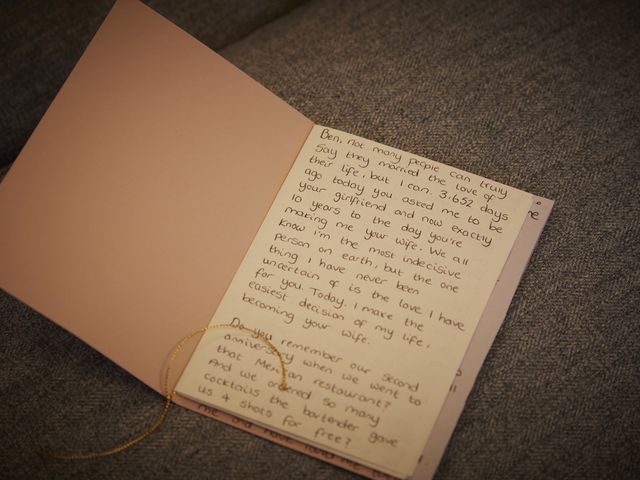 Ben, Not many people can truly
Say they married the love of
their life, but I can. 3,652 days
ago today you asked me to be
your girlfriend and now exactly
10 years to the day you're
making me your wife. We all
know I'm the most indecisive
person on earth, but the one
thing I have never been
uncertain of is the love I have
for you. Today, I make the
easiest decision of my life,
becoming your wife.
Do you remember our Second
anniversary when we went to
that Mexican restaurant?
And we ordered so many
cocktails the bartender gave
us 4 shots for free?
me and have